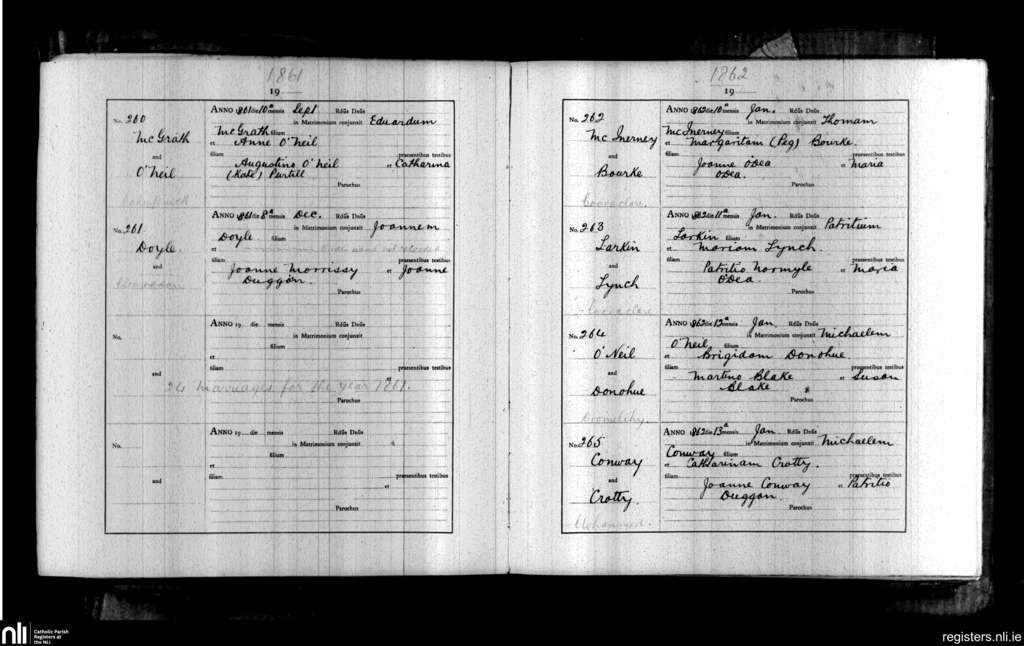 1861
19
No. 260
McGrath
and
O'Neil
ANNO 1861 die 10a mensis Sept Rdūs Dnūs
in Matrimonium conjunxit Eduardum
McGrath filium
et Anne O'Neil
filiam praesentibus testibus
Augustino O'Neil et Catharina
(Kate) Purtill
Parochus
No. 261
Doyle
and
ANNO 1861 die 8a mensis Dec. Rdūs Dnūs
in Matrimonium conjunxit Joannem
Doyle filium
et name not recorded
filiam praesentibus testibus
Joanne Morrissy et Joanne
Duggan.
Parochus
No.
and
ANNO 19 die mensis Rdūs Dnūs
in Matrimonium conjunxit
filium
et
filiam praesentibus testibus
26 marriages for the year 1861.
et
Parochus
No.
and
ANNO 19 die mensis Rdūs Dnūs
in Matrimonium conjunxit
filium
et
filiam praesentibus testibus
et
Parochus
1862
19
No. 262
McInerney
and
Bourke
Cooraclare.
ANNO 1862 die 10a mensis Jan. Rdūs Dnūs
in Matrimonium conjunxit Thomam
McInerney filium
et Margaritam (Peg) Bourke.
filiam praesentibus testibus
Joanne O'Dea et Maria
O'Dea.
Parochus
No. 263
Larkin
and
Lynch
Cooraclare
ANNO 1862 die 11a mensis Jan. Rdūs Dnūs
in Matrimonium conjunxit Patritium
Larkin filium
et Mariam Lynch.
filiam praesentibus testibus
Patritio Normyle et Maria
O'Dea.
Parochus
No. 264
O'Neil
and
Donohue
ANNO 1862 die 12a mensis Jan. Rdūs Dnūs
in Matrimonium conjunxit Michaelem
O'Neil filium
et Brigidam Donohue
filiam praesentibus testibus
Martino Blake et Susan
Blake
Parochus
No. 265
Conway
and
Crotty.
ANNO 1862 die 13a mensis Jan. Rdūs Dnūs
in Matrimonium conjunxit Michaelem
Conway filium
et Catharinam Crotty.
filiam praesentibus testibus
Joanne Conway et Patritio
Duggan.
Parochus
nli Catholic Parish
Registers at
the NLI
registers.nli.ie